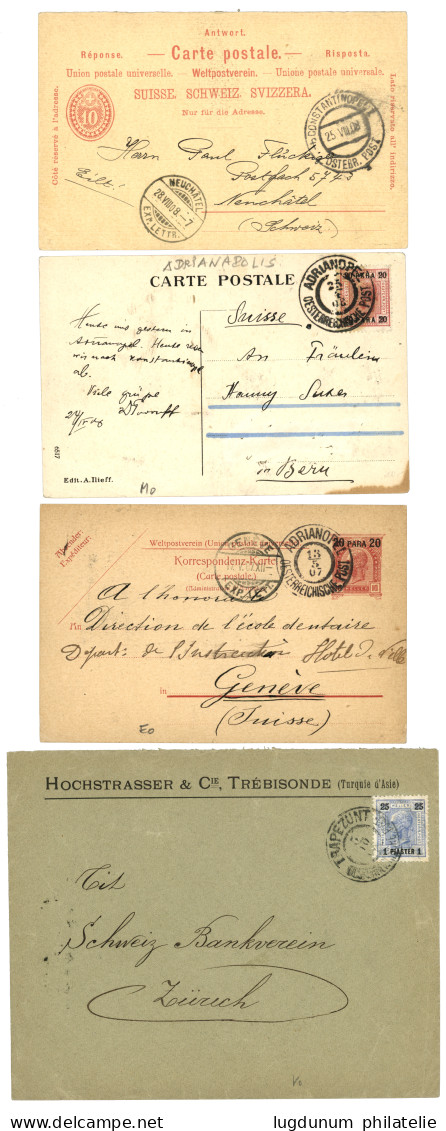 Antwort.
Réponse. — Carte postale. — Risposta.
Union postale universelle. — Weltpostverein. — Unione postale universale.
SUISSE. SCHWEIZ. SVIZZERA.
Nur für die Adresse.
Côté réservé à l'adresse.
Lato riservato all' indirizzo.
10
CONSTANTINOPEL
25 VIII 08
ÖSTERR. POST
Herrn Paul Flückiger
Postfach 5743
Eilt!
Neuchâtel
(Schweiz)
NEUCHÂTEL
28 VIII 08 - 7
EXP. LETTR.
ADRIANAPOLIS
CARTE POSTALE
ADRIANOPEL
OESTERREICHISCHE POST
20 PARA 20
Suisse
An Fräulein
Hanny Suter
in Bern
Heute
gestern in
Heute
nach Konstantinopel
ab.
Viele Grüsse
6617
Edit. A. Ilieff.
Mo
Weltpostverein (Union postale universelle)
Korrespondenz-Karte
(Carte postale.)
Expéditeur:
GENÈVE
EXP. LETT.
ADRIANOPEL
13
5
07
OESTERREICHISCHE POST
20 PARA 20
A l'honorable
An
Direction de l'école dentaire
Départ. de l'Instruction Hotel de Ville
in
Genève
(Suisse)
Eo
HOCHSTRASSER & CIE, TRÉBISONDE (Turquie d'Asie)
TRAPEZUNT
25 25
1 PIASTER 1
Tit
Schweiz Bankverein
Zürich
Vo
lugdunum philatelie